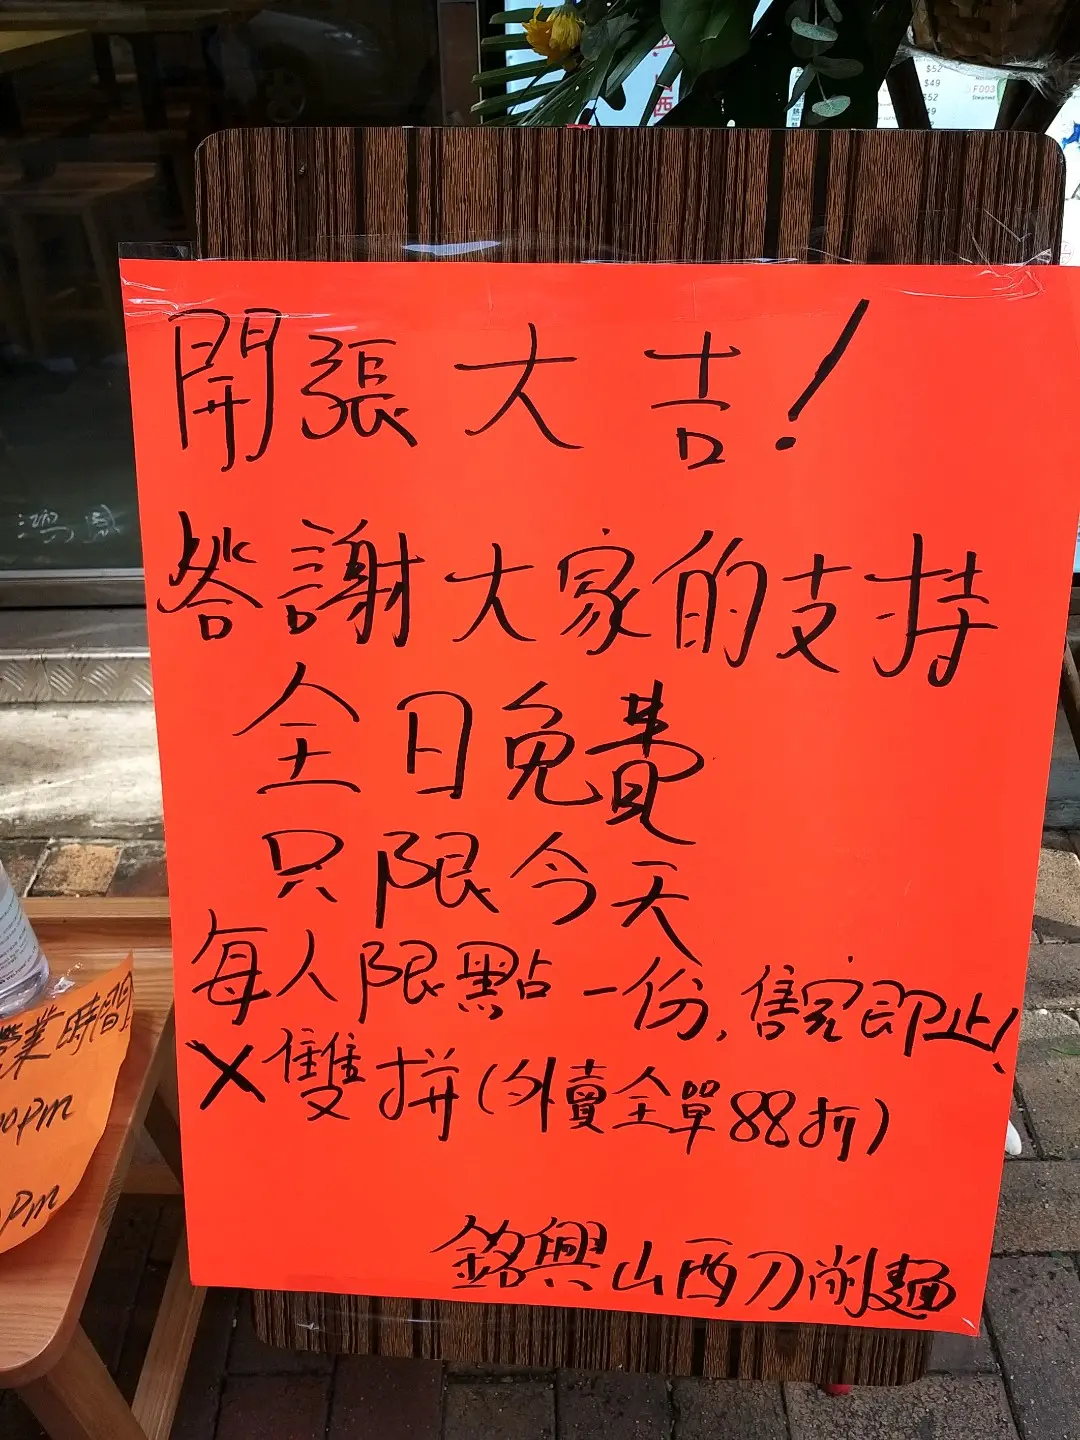 開張大吉！
答謝大家的支持
全日免費
只限今天
每人限點一份，售完即止！
X雙拼（外賣全單88折）
銘興山西刀削麵
營業時間
00PM
PM
西
$52
$49
$52
F003